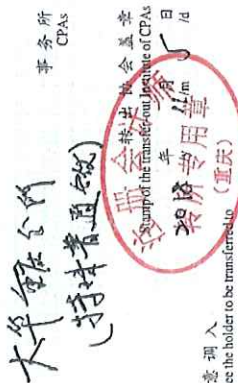 大华重庆分所
(特殊普通合伙)
事务所
CPAs
转出协会盖章
Stamp of the transfer-out Institute of CPAs
年 11 月 5 日
/m /d
注册会计师
转所专用章
(重庆)
意调入
ee the holder to be transferred to